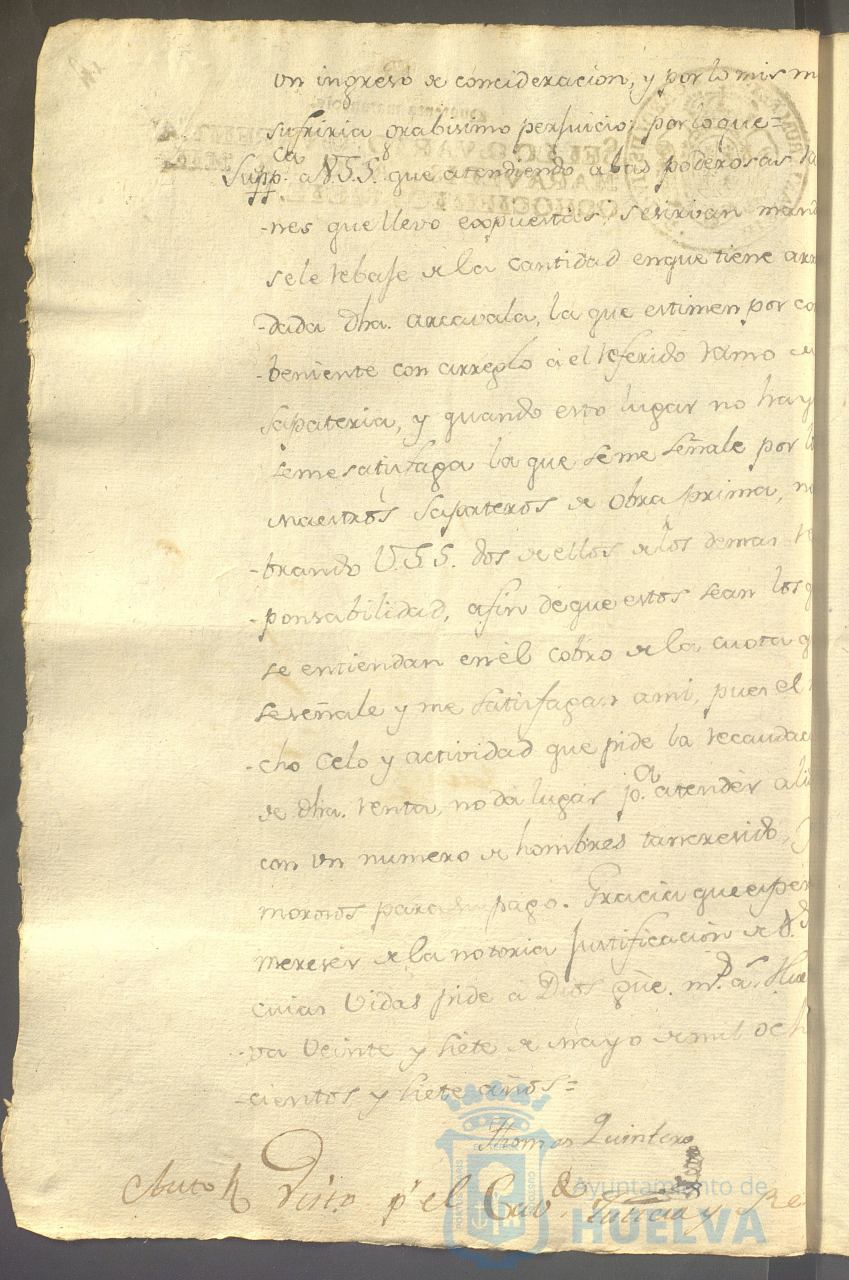 un ingreso de concideracion, y por lo mism
sufriria grabisimo perjuicio; por lo que=
Suppca. a V.S.S. que atendiendo a las poderosas ra
-nes que llevo expuestas, se sirvan mand
se le rebase de la cantidad en que tiene arr
-dada dha. arcavala, la que estimen por co
-beniente con arreglo a el referido ramo de
sapateria, y quando esto lugar no hay
se me satisfaga la que se me señale por l
Maestros Sapateros de Obra prima, no
-brando V.S.S. dos de ellos de los demas re
-ponsabilidad, afin de que estos sean los q
se entiendan en el cobro de la cuota q
se señale y me satisfagan a mi, pues el
-cho celo y actividad que pide la recaudac
de dha. renta, no da lugar pa. atender a li
con un numero de hombres tan cresido,
morosos para su pago. Gracia que esper
mereser de la notoria justificacion de V.S
cuias vidas pide a Dios gue. ms. as. Hue
-va Veinte y siete de Mayo de mil och
-cientos y siete años=
Thomas Quintero
Auto Visto pr el Cavo
Ayuntamiento de
HUELVA